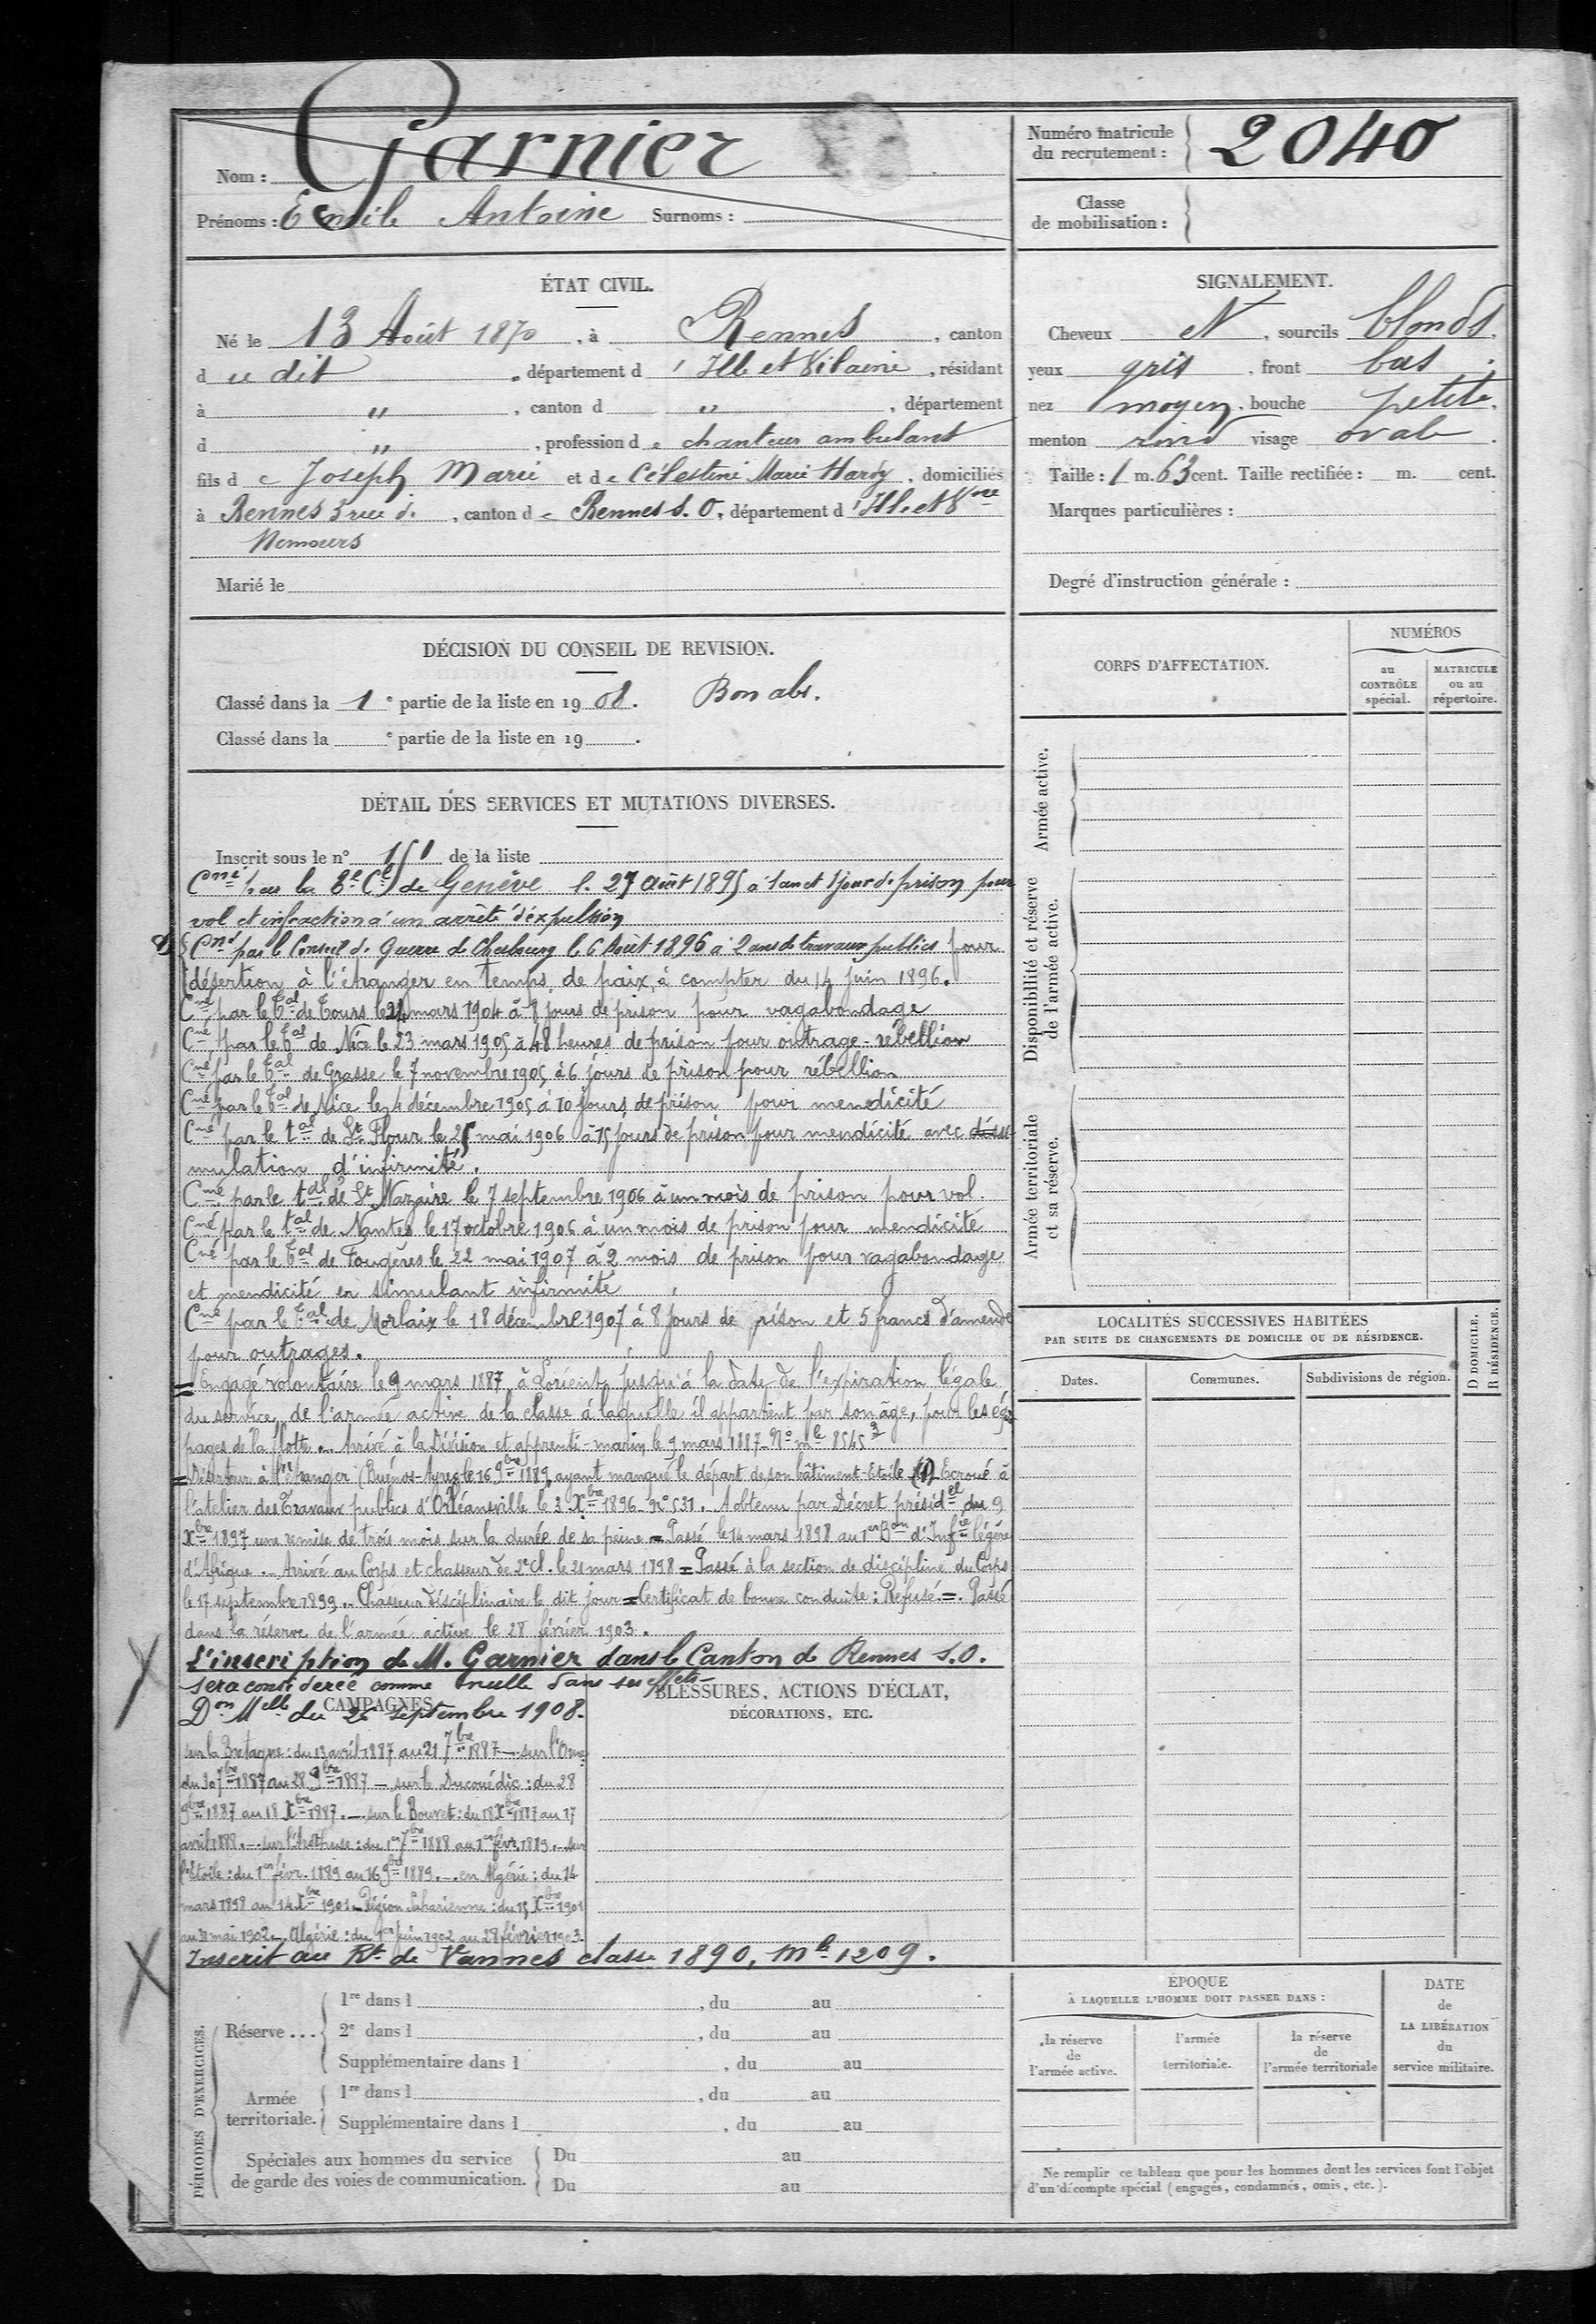 Nom : Garnier
Prénoms : Emile Antoine Surnoms :
Numéro matricule
du recrutement : 2040
Classe
de mobilisation :
ÉTAT CIVIL.
Né le 13 Août 1870, à Rennes, canton
d u dit, département d'Ille et Vilaine, résidant
à ", canton d ", département
d ", profession de chanteur ambulant
fils de Joseph Marie et de Célestine Marie Hardy, domiciliés
à Rennes 5 rue de, canton de Rennes S.O., département d'Ille et Vne
Nemours
Marié le
SIGNALEMENT.
Cheveux N, sourcils blonds.
yeux gris, front bas.
nez moyen, bouche petite.
menton rond visage ovale.
Taille : 1 m. 63 cent. Taille rectifiée : m. cent.
Marques particulières :
Degré d'instruction générale :
DÉCISION DU CONSEIL DE REVISION.
Classé dans la 1e partie de la liste en 1908. Bon abs.
Classé dans la e partie de la liste en 19 .
DÉTAIL DES SERVICES ET MUTATIONS DIVERSES.
Inscrit sous le n° 151 de la liste
Cné par la Cle de Genève le 27 Août 1895 à 1 an et 1 jour de prison pour
vol et infraction à un arrêté d'expulsion
Cné par le Conseil de Guerre de Cherbourg le 6 Août 1896 à 2 ans de travaux publics pour
désertion à l'étranger en temps de paix, à compter du 14 juin 1896.
Cné par le Tal de Tours le 24 mars 1904 à 8 jours de prison pour vagabondage
Cné par le Tal de Nice le 23 mars 1905 à 48 heures de prison pour outrage - rébellion
Cné par le Tal de Grasse le 7 novembre 1905 à 6 jours de prison pour rébellion
Cné par le Tal de Nice le 4 décembre 1905 à 10 jours de prison pour mendicité
Cné par le tal de St Flour le 25 mai 1906 à 15 jours de prison pour mendicité avec dissi-
mulation d'infirmité.
Cné par le tal de St Nazaire le 7 septembre 1906 à un mois de prison pour vol.
Cné par le tal de Nantes le 17 octobre 1906 à un mois de prison pour mendicité
Cné par le Tal de Fougères le 22 mai 1907 à 2 mois de prison pour vagabondage
et mendicité en simulant infirmité
Cné par le Tal de Morlaix le 18 décembre 1907 à 8 jours de prison et 5 francs d'amende
pour outrages.
= Engagé volontaire le 9 mars 1887 à Lorient jusqu'à la date de l'expiration légale
du service, de l'armée active de la classe à laquelle il appartient par son âge, pour les équi-
pages de la flotte. - Arrivé à la Division et apprenti-marin le 9 mars 1887 - N° mle 8545
= Déserteur à l'étranger (Buénos-Ayres le 16 9bre 1889, ayant manqué le départ de son bâtiment-Etoile (1) Ecroué à
l'atelier des Travaux publics d'Orléansville le 3 Xbre 1896 - N° 531. A obtenu par Décret présidel du 9
Xbre 1897 une remise de trois mois sur la durée de sa peine = Passé le 14 mars 1898 au 1er Bon d'Infie légère
d'Afrique. - Arrivé au Corps et chasseur de 2e Cl. le 21 mars 1898 = Passé à la section de discipline du Corps
le 17 septembre 1899. - Chasseur disciplinaire le dit jour = Certificat de bonne conduite : Refusé. = Passé
dans la réserve de l'armée active le 28 février 1903.
L'inscription de M. Garnier dans le Canton de Rennes S.O.
sera considérée comme nulle dans ses effets -
Don Melle du 26 septembre 1908.
CAMPAGNES
sur la Bretagne : du 13 avril 1887 au 21 7bre 1887 - sur l'Orne
du 30 7bre 1887 au 28 9bre 1887 - sur le Ducouédic : du 28
9bre 1887 au 18 Xbre 1887. - sur le Bouvet : du 18 Xbre 1887 au 17
avril 1888. - sur l'Aréthuse : du 1er 7bre 1888 au 1er févr. 1889. - sur
l'Etoile : du 1er févr. 1889 au 16 9bre 1889. - en Algérie : du 14
mars 1898 au 14 Xbre 1901 - Région Saharienne : du 15 Xbre 1901
au 31 mai 1902 - Algérie : du 1er juin 1902 au 28 février 1903.
Inscrit au Rt de Vannes classe 1890, mle 1209.
BLESSURES, ACTIONS D'ÉCLAT,
DÉCORATIONS, ETC.
CORPS D'AFFECTATION.
NUMÉROS
au
CONTRÔLE
spécial.
MATRICULE
ou au
répertoire.
Armée active.
Disponibilité et réserve
de l'armée active.
Armée territoriale
et sa réserve.
LOCALITÉS SUCCESSIVES HABITÉES
PAR SUITE DE CHANGEMENTS DE DOMICILE OU DE RÉSIDENCE.
D DOMICILE.
R RÉSIDENCE.
Dates.
Communes.
Subdivisions de région.
PÉRIODES D'EXERCICES.
Réserve ...
1re dans l , du au
2e dans l , du au
Supplémentaire dans l , du au
Armée
territoriale.
1re dans l , du au
Supplémentaire dans l , du au
Spéciales aux hommes du service
de garde des voies de communication.
Du au
Du au
ÉPOQUE
À LAQUELLE L'HOMME DOIT PASSER DANS :
la réserve
de
l'armée active.
l'armée
territoriale.
la réserve
de
l'armée territoriale
DATE
de
LA LIBÉRATION
du
service militaire.
Ne remplir ce tableau que pour les hommes dont les services font l'objet
d'un décompte spécial (engagés, condamnés, omis, etc.).